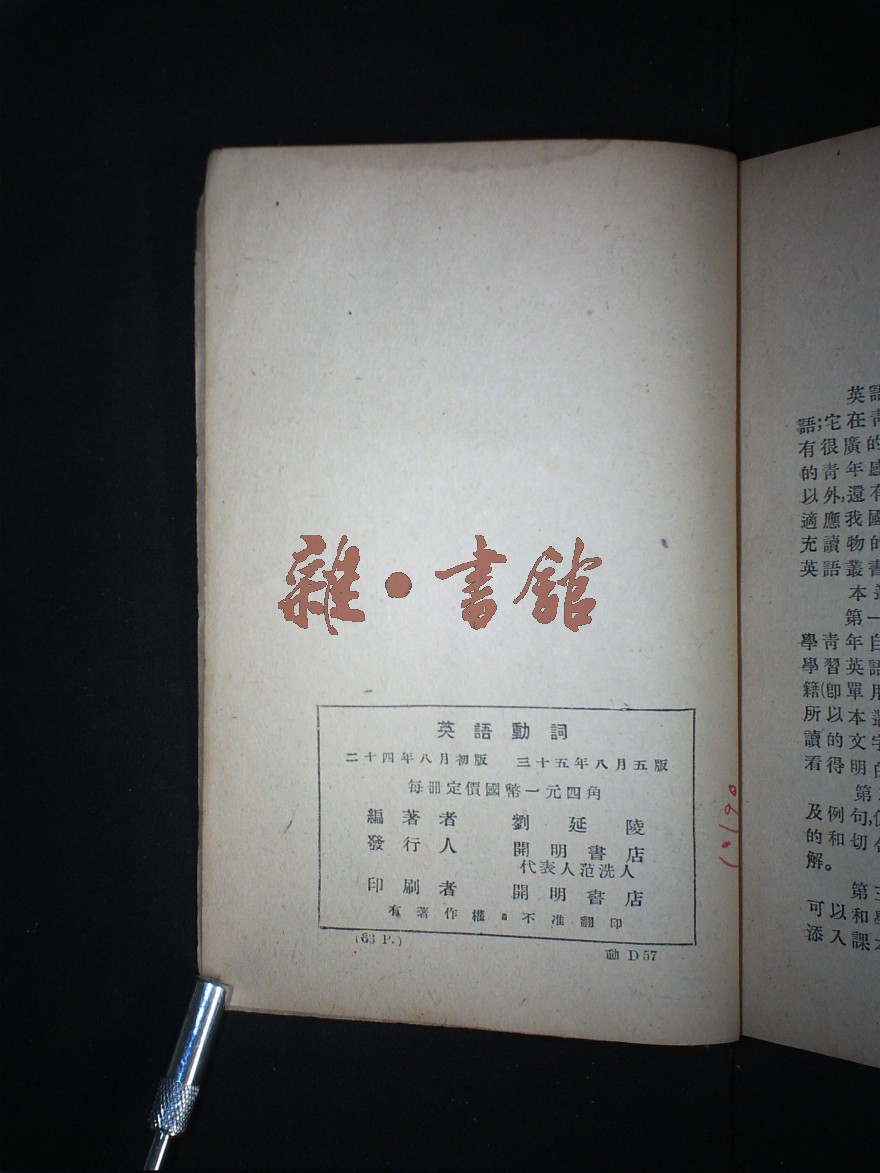 雜·書館
英語動詞
二十四年八月初版 三十五年八月五版
每冊定價國幣一元四角
編著者 劉延陵
發行人 開明書店
代表人范洗人
印刷者 開明書店
有著作權不准翻印
(63 P.)
動 D 57
英語
語;宅在靑
有很廣的
的靑年感
以外,還有
適應我國
充讀物的
英語叢書
本叢
第一
學靑年自
學習英語
籍(卽單用
所以本叢
讀的文字
看得明白
第二
及例句,
的和切合
解。
第三
可以和
添入課